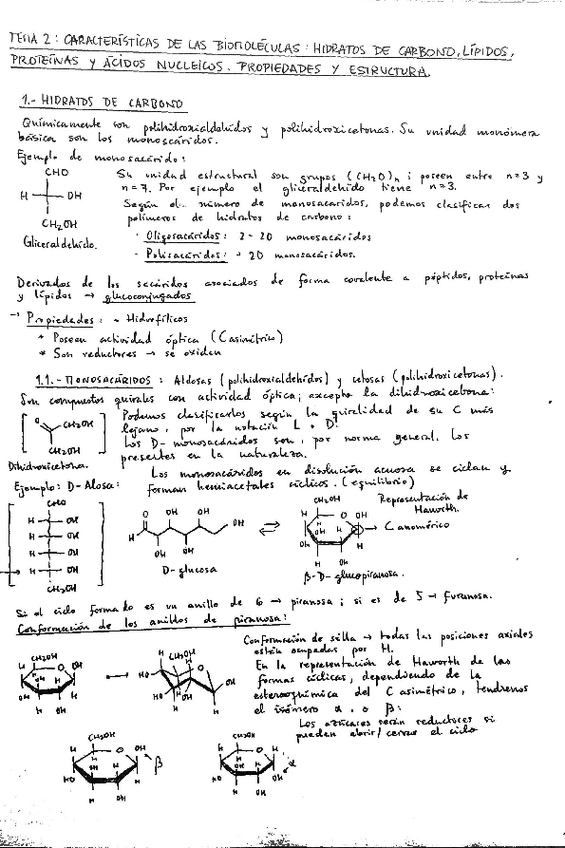 TEMA 2: CARACTERÍSTICAS DE LAS BIOMOLÉCULAS: HIDRATOS DE CARBONO, LÍPIDOS,
PROTEÍNAS Y ÁCIDOS NUCLEICOS. PROPIEDADES Y ESTRUCTURA.
1.- HIDRATOS DE CARBONO
Químicamente son polihidroxialdehídos y polihidroxicetonas. Su unidad monómera
básica son los monosacáridos.
Ejemplo de monosacárido:
CHO
H OH
CH2OH
Gliceraldehído.
Su unidad estructural son grupos (CH2O)n; poseen entre n=3 y
n=7. Por ejemplo el gliceraldehído tiene n=3.
Según el número de monosacáridos, podemos clasificar dos
polímeros de hidratos de carbono:
· Oligosacáridos: 2-20 monosacáridos
- Polisacáridos: + 20 monosacáridos.
Derivados de los sacáridos asociados de forma covalente a péptidos, proteínas
y lípidos → glucoconjugados
→ Propiedades: * Hidrofílicos
* Poseen actividad óptica (C asimétrico)
* Son reductores → se oxidan
1.1.- MONOSACÁRIDOS: Aldosas (polihidroxialdehídos) y cetosas (polihidroxicetonas).
Son compuestos quirales con actividad óptica; excepto la dihidroxicetona:
O CH2OH
CH2OH
Dihidroxicetona.
Podemos clasificarlos según la quiralidad de su C más
lejano, por la notación L o D.
Los D-monosacáridos son, por norma general, los
presentes en la naturaleza.
Los monosacáridos en disolución acuosa se ciclan y
forman hemiacetales cíclicos. (equilibrio)
Ejemplo: D-Alosa:
CHO
H OH
H OH
H OH
H OH
CH2OH
O OH OH OH
H OH OH
D-glucosa
CH2OH
H O OH
H
OH H
OH H
H OH
β-D-glucopiranosa.
Representación de
Haworth.
→ C anomérico
Si el ciclo formado es un anillo de 6 → piranosa; si es de 5 → furanosa.
Conformación de los anillos de piranosa:
CH2OH
H O OH
H
OH H
OH H
H OH
H CH2OH
HO O
HO OH
H OH H
Conformación de silla → todas las posiciones axiales
están ocupadas por H.
En la representación de Haworth de las
formas cíclicas, dependiendo de la
estereoquímica del C asimétrico, tendremos
el isómero α o β:
Los azúcares serán reductores si
pueden abrir/cerrar el ciclo
CH2OH
H O OH
H
OH H
HO H
H OH
β
CH2OH
H O H
H
OH H
HO OH
H OH
α